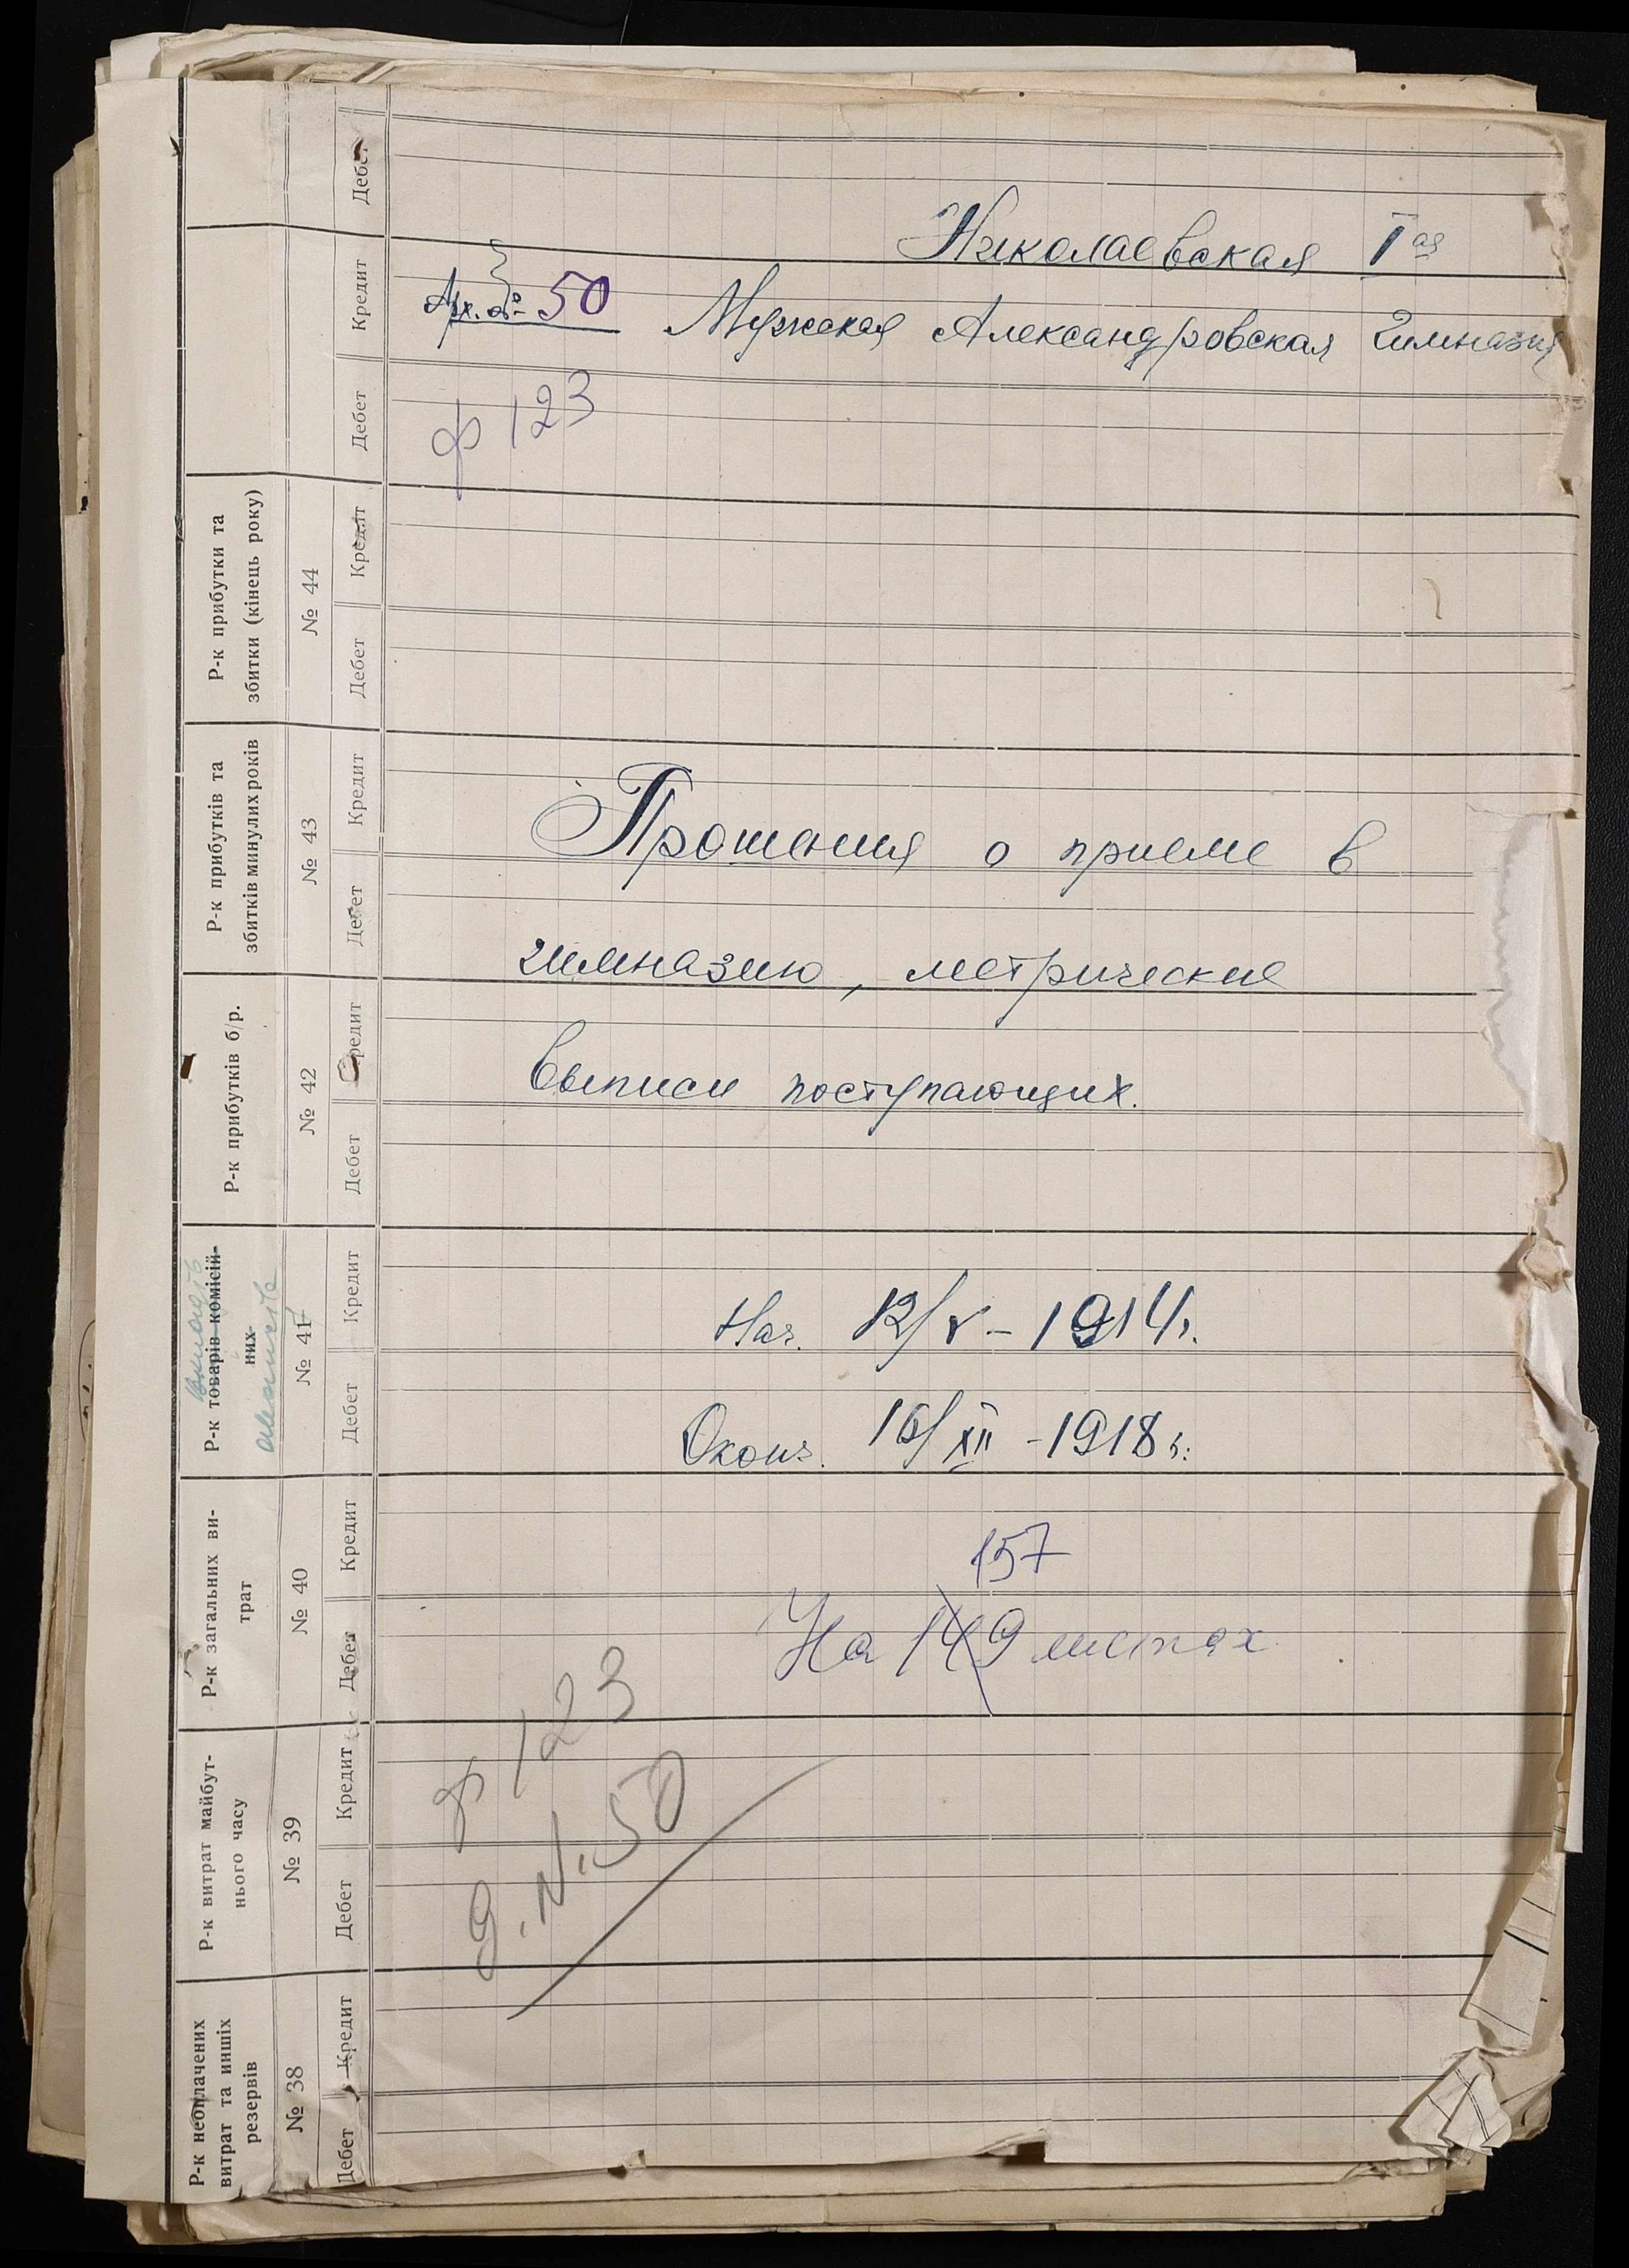 Николаевская Iая
Арх. № 50
Мужская Александровская Гимназия
ф 123
Прошения о приеме в
гимназию, метрические
выписи поступающих.
Нач. 12/V – 1914 г.
Оконч. 16/XII – 1918 г.
157
На 149 листах
ф 123
д. N. 50
Дебет
Кредит
Дебет
Р-к прибутки та
збитки (кінець року)
№ 44
Кредит
Дебет
Р-к прибутків та
збитків минулих років
№ 43
Кредит
Дебет
Р-к прибутків б/р.
№ 42
Кредит
Дебет
Р-к товарів комісій-
них
№ 41
Кредит
Дебет
Р-к загальних ви-
трат
№ 40
Кредит
Дебет
Р-к витрат майбут-
нього часу
№ 39
Кредит
Дебет
Р-к неоплачених
витрат та инших
резервів
№ 38
Кредит
Дебет